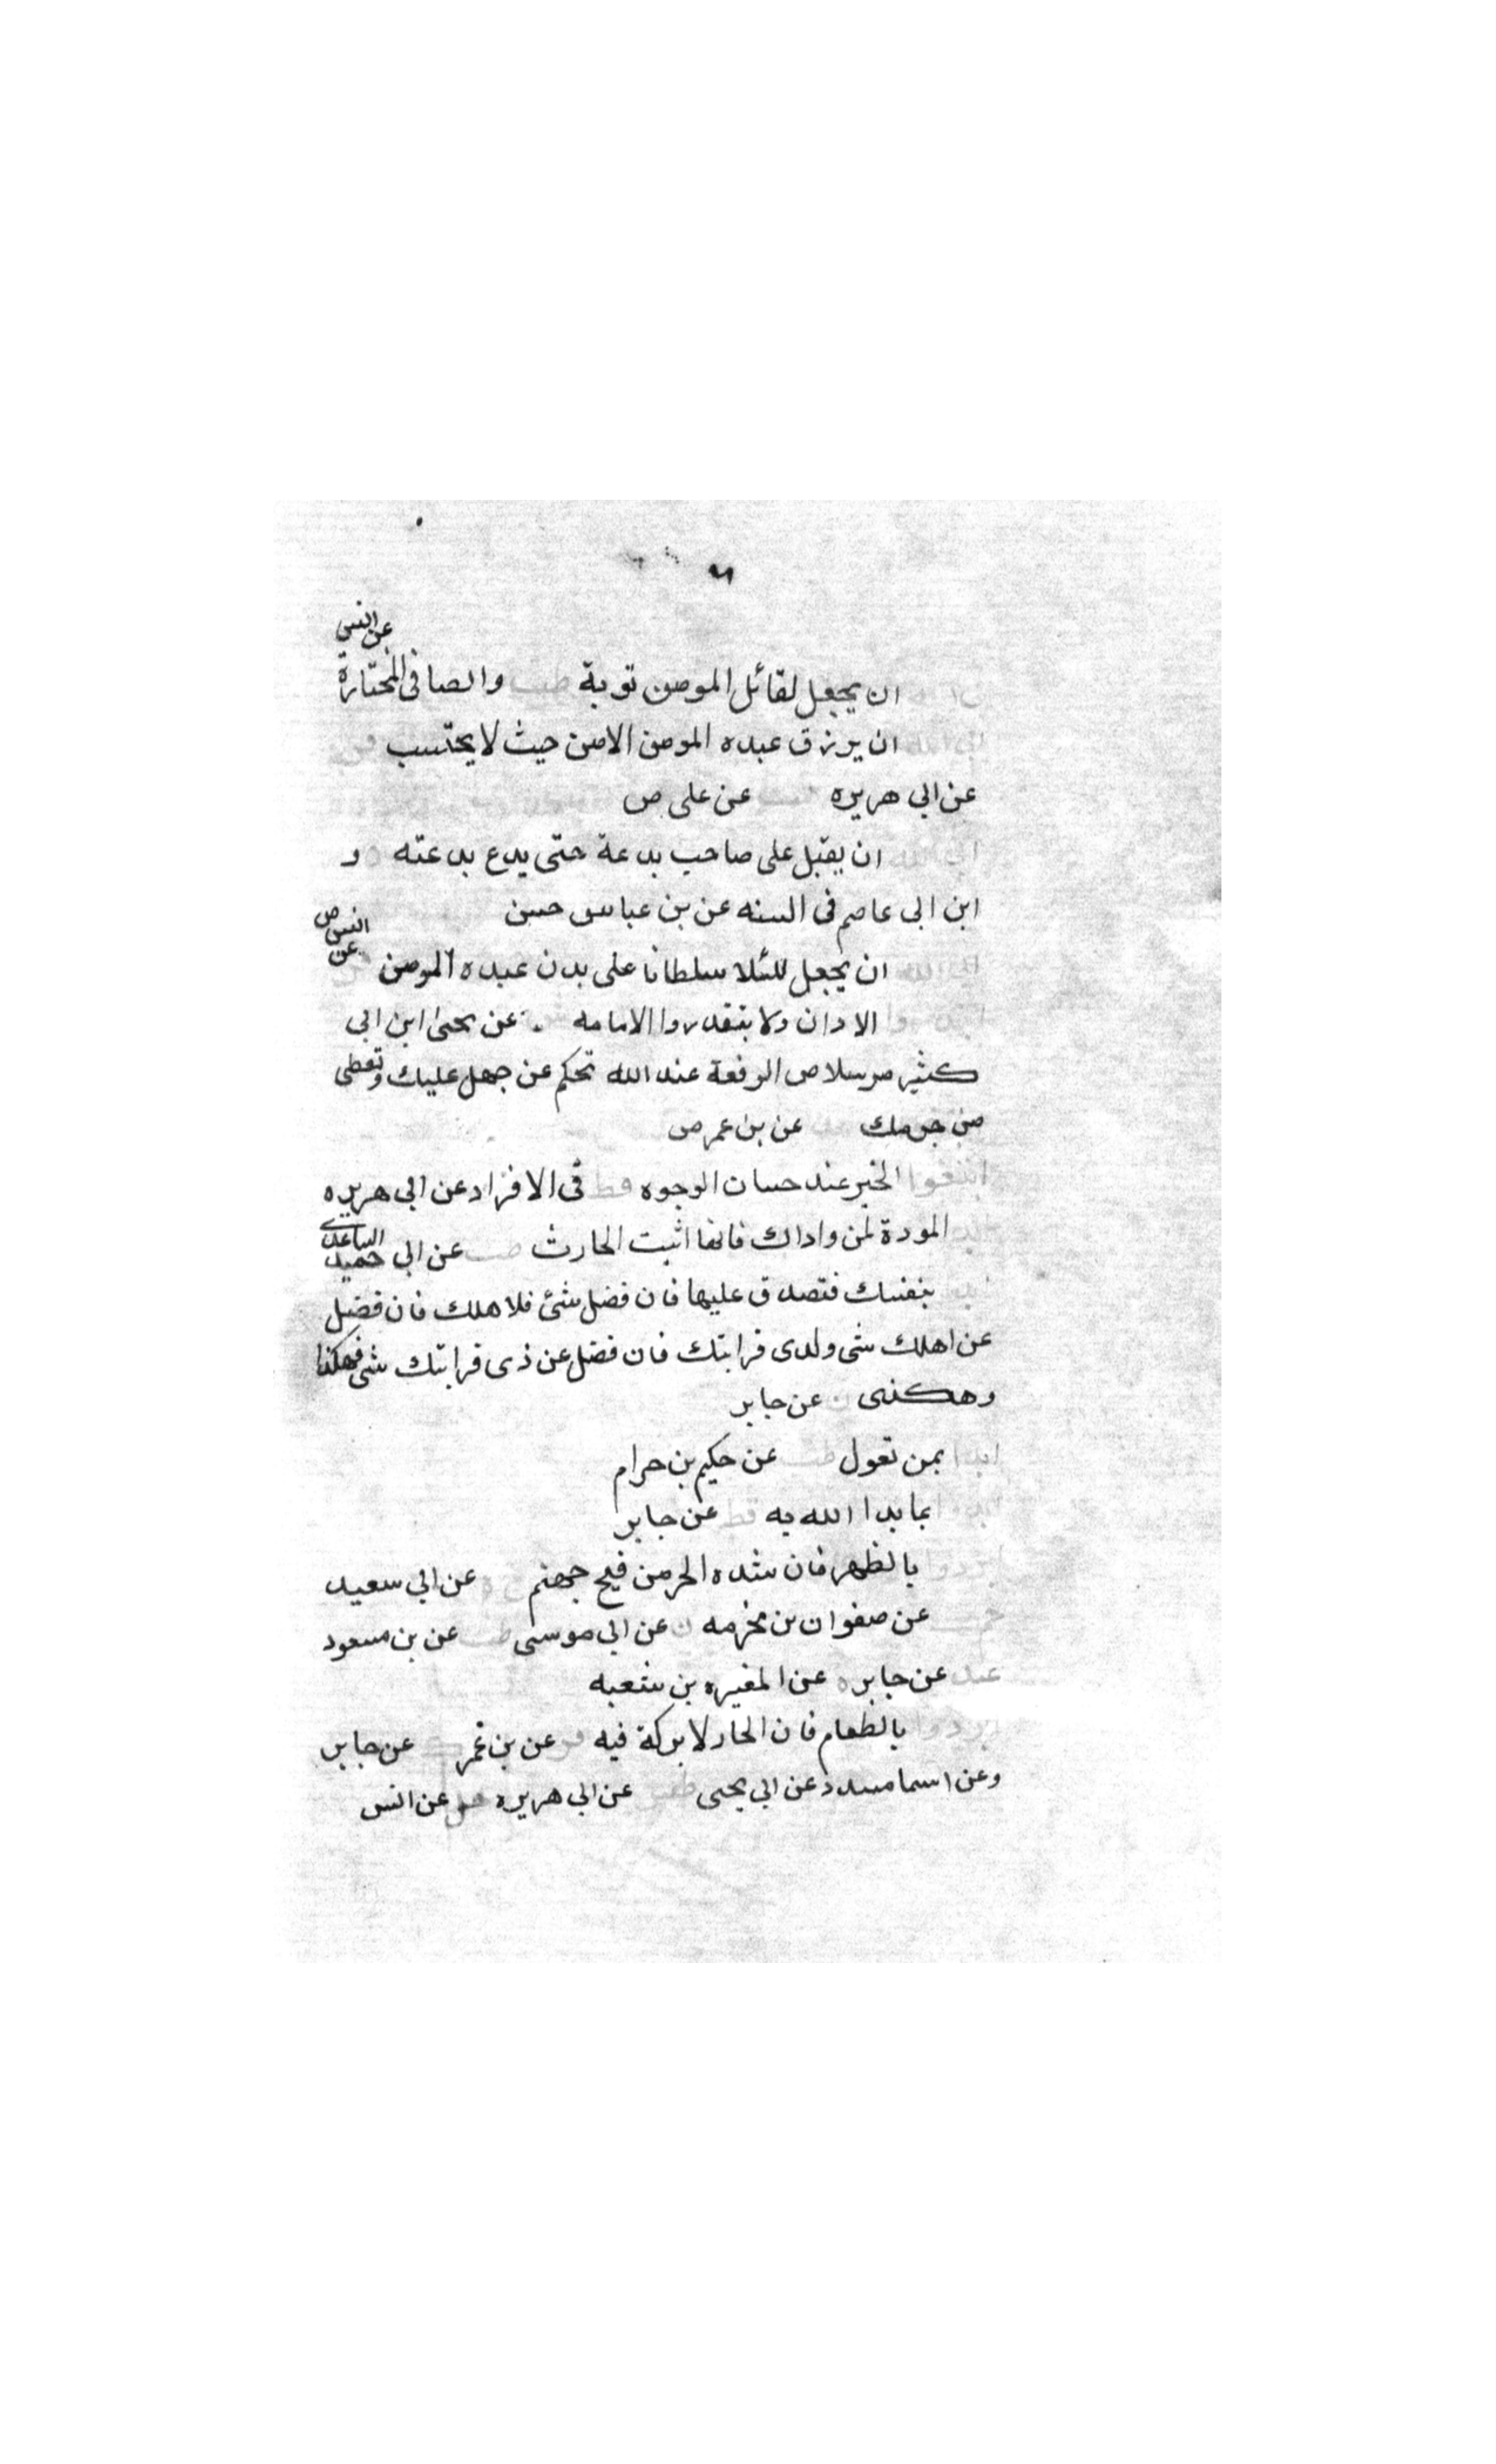 عن انس
ابى الله ان يجعل لقاتل المومن توبة طب والضيا فى المختارة
ابى الله ان يرزق عبده المومن الا من حيث لا يحتسب فر
عن ابى هريره عن على ض
ابى الله ان يقبل على صاحب بدعة حتى يدع بدعته ه و
ابن ابى عاصم فى السنه عن بن عباس حسن
ابى الله ان يجعل للبلا سلطانا على بدن عبده المومن عن انس ض
الادان ولا يبتدروا الامامه عن يحيى ابن ابى
كثير مرسلا ض الرفعة عند الله تحكم عن جهل عليك وتعطى
من حرمك عن بن عمر ض
ابتغوا الخير عند حسان الوجوه قط فى الافراد عن ابى هريره
المودة لمن وادك فانها اثبت الحارث طب عن ابى حميد الساعدى
بنفسك فتصدق عليها فان فضل شئ فلاهلك فان فضل
عن اهلك شى ولدى قرابتك فان فضل عن ذى قرابتك شى فهكذا
وهكذى ن عن جابر
ابدا بمن تعول طب عن حكيم بن حرام
ابدوا بما بدا الله به قط عن جابر
ابردوا بالظهر فان شده الحر من فيح جهنم خ ه عن ابى سعيد
حم عن صفوان بن مخرمه ن عن ابى موسى طب عن بن مسعود
عد عن جابر ه عن المغيره بن شعبه
ابردوا بالطعام فان الحار لا بركة فيه فر عن بن عمر ك عن جابر
وعن اسما مسدد عن ابى يحيى طس عن ابى هريره حل عن انس